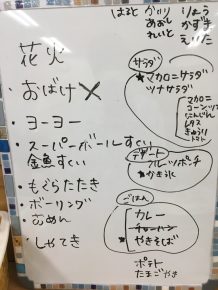 はると かいり りょう
めおし かずま
れいと えいた
花火
・おばけ ×
・ヨーヨー
・スーパーボールすくい
金魚すくい
・もぐらたたき
・ボーリング
・おめん
・しゃてき
サラダ
*マカロニサラダ
ツナサラダ
マカロニ
コーンツナ
にんじん
レタス
きゅうり
トマト
デザート
フルーツポンチ
*かき氷
ごはん
カレー
チャーハン
やきそば
ポテト
たまごやき